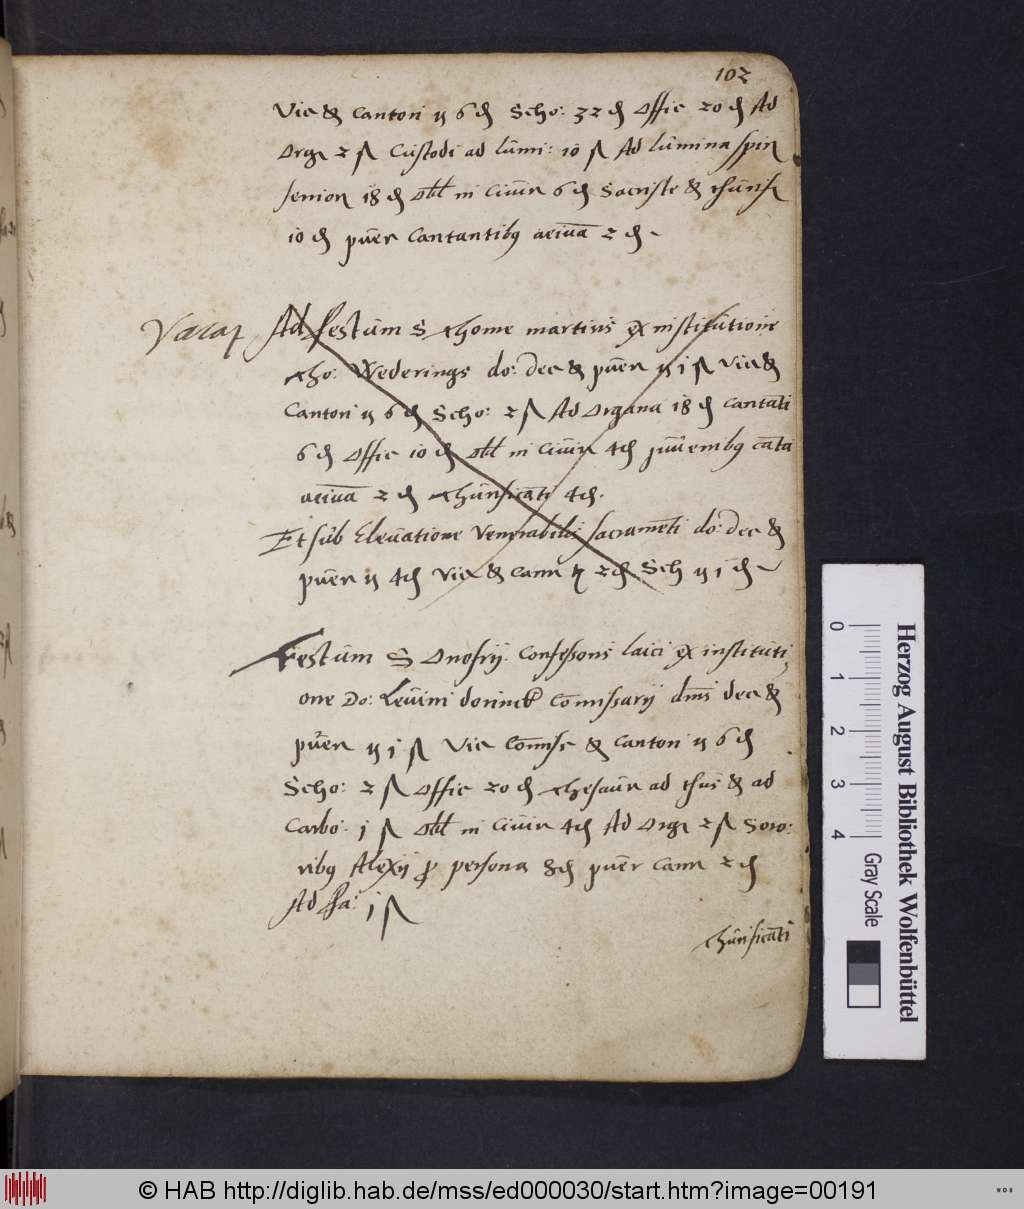 102
Vic & Cantori ij 6 d Scho: 32 d Offic 20 d Ad
Orga 2 ß Custodi ad lumi: 10 ß Ad lumina
senior 18 d Obl in Civin 6 d Sacriste & thurif
10 d puer Cantantibus aeiuā 2 d
Vacat
Ad Festum S Thome martiris ex institutione
Tho: Wederings do: Dec & puer ij 1 ß Vic &
Cantori ij 6 d Scho: 2 ß Ad Organa 18 d Cantāti
6 d Offic 10 d Obl in Civin 4 d
aeiuā 2 d Thurificāti 4 d.
Et sub Elevatione Venerabilis sacramēti do: dec &
puer ij 4 d Vic & Cam ij 2 d Sch ij 1 d
Festum S Onofrij Confessoris laici ex instituti
one Do: Levini dorinck Comissarij dm̄s dec &
puer ij j ß Vic Comiss & Cantori ij 6 d
Scho: 2 ß Offic 20 d Thesaur ad thus & ad
Carbo: j ß Obl in Civin 4 d Ad Orga 2 ß Soro:
ribus Alexij pro persona 8 d puer Cam 2 d
Ad Fa: j ß
Thurificāti
Herzog August Bibliothek Wolfenbüttel
0 1 2 3 4
Gray Scale
© HAB http://diglib.hab.de/mss/ed000030/start.htm?image=00191